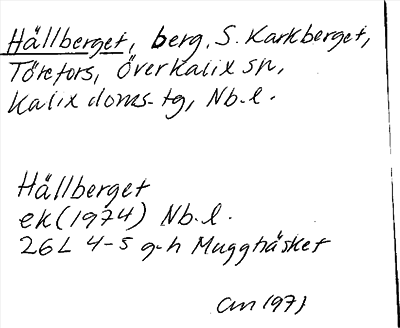 Hällberget, berg, S. Karkberget,
Törefors, Överkalix sn,
Kalix doms-tg, Nb. l.
Hällberget
ek (1974) Nb. l.
26L 4-5 g-h Muggträsket
1971